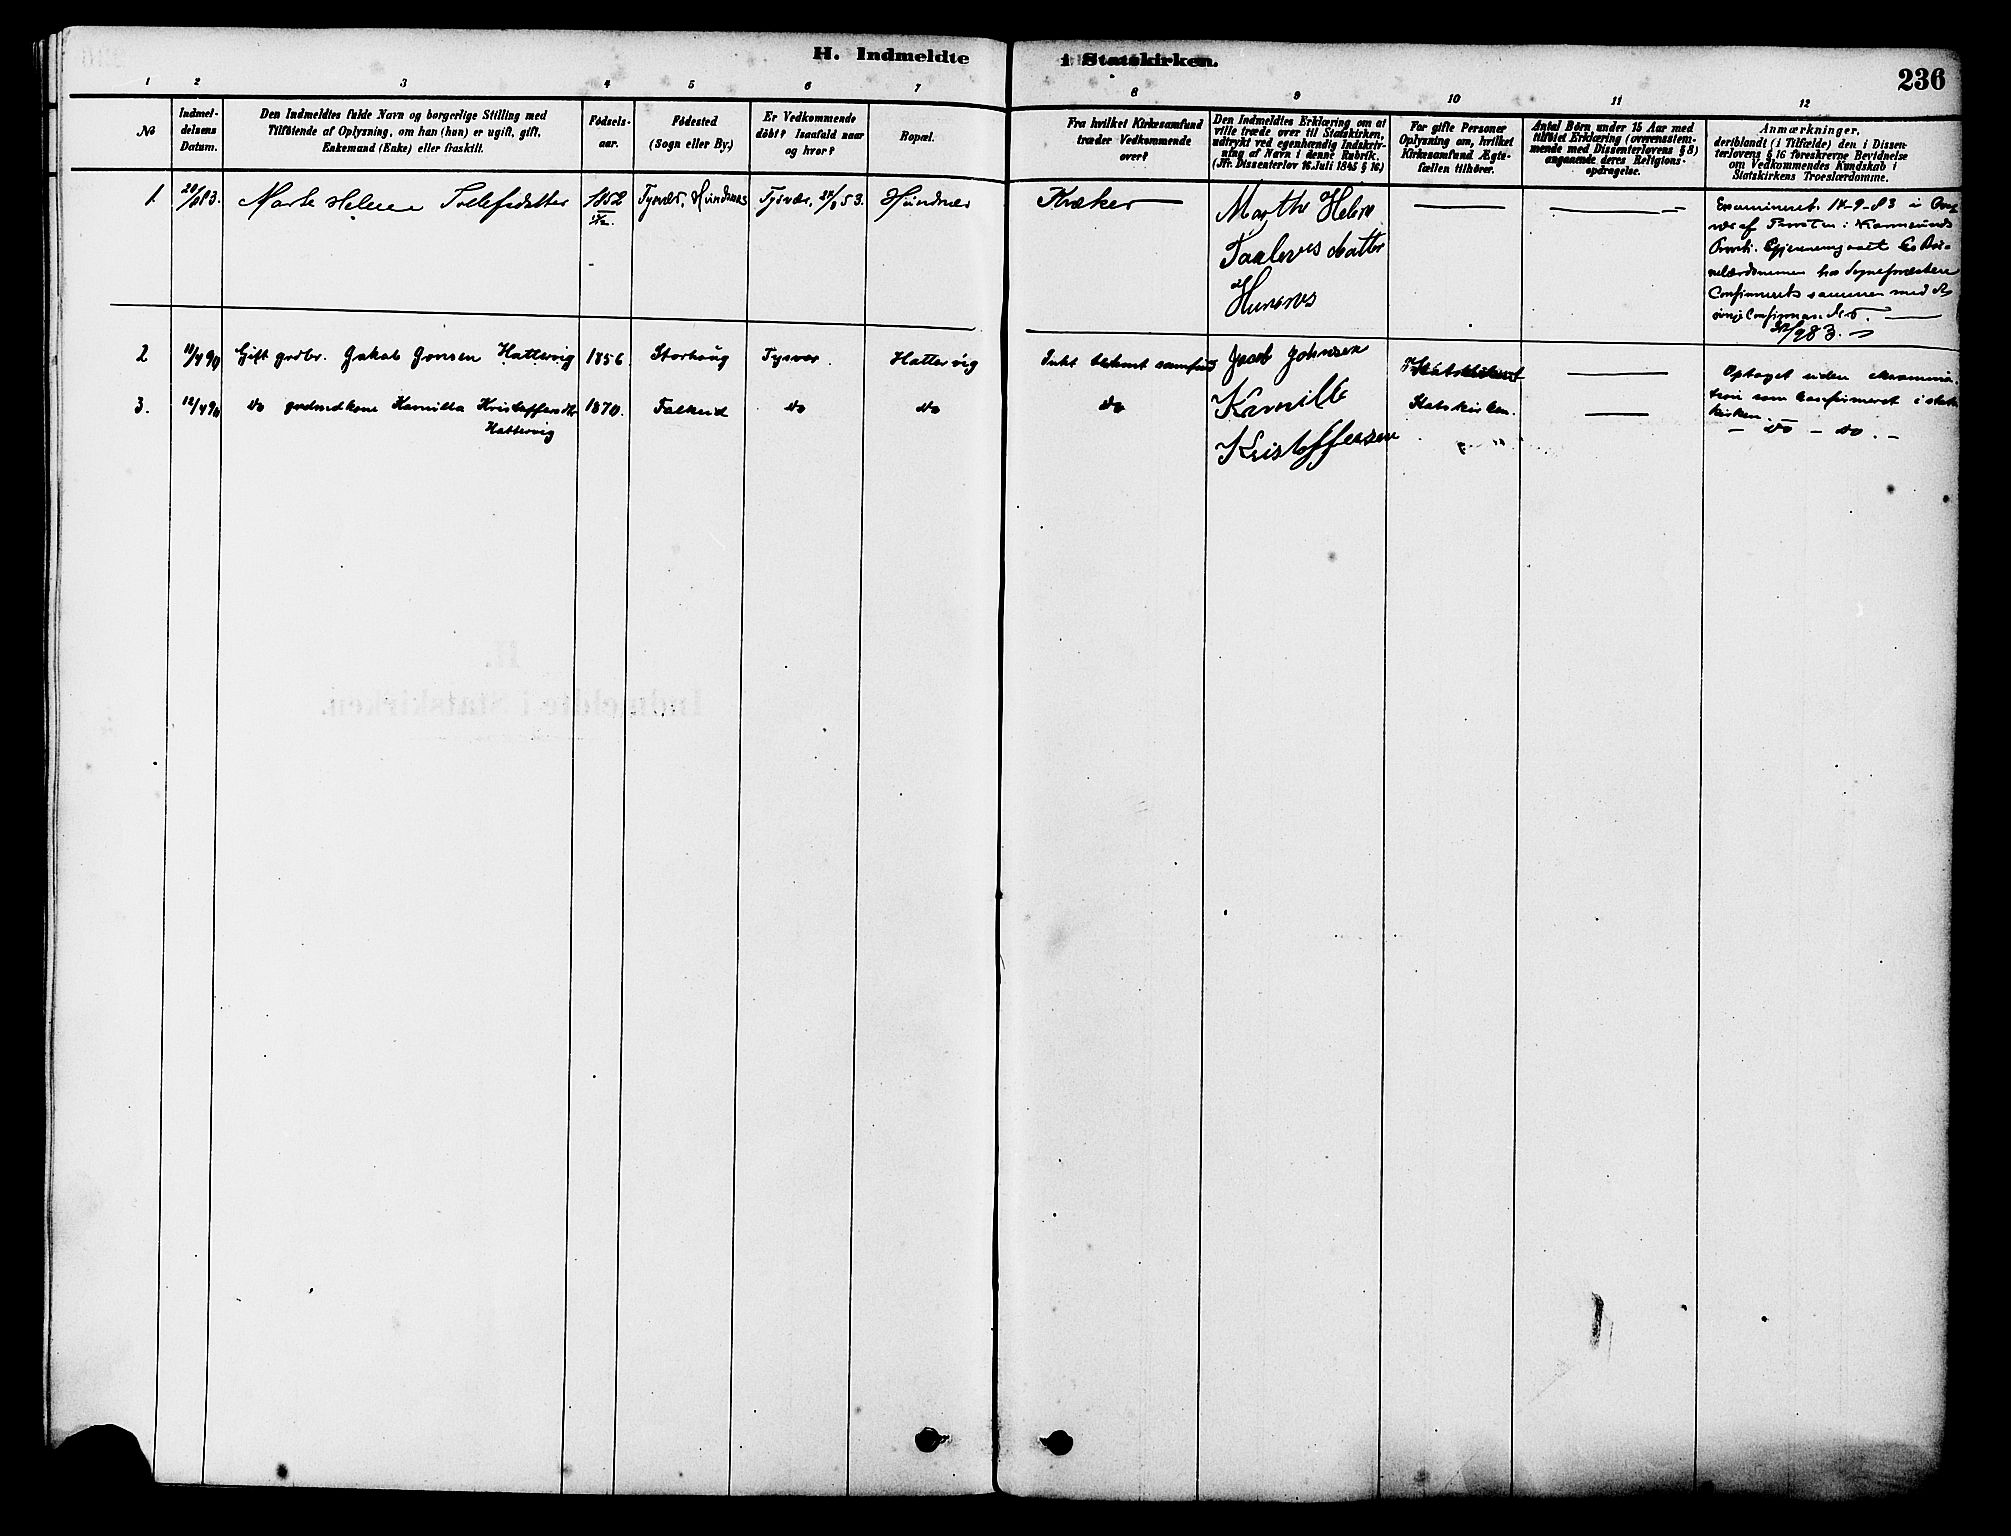 H. Indmeldte i Statskirken.
236
1 2 3 4 5 6 7 8 9 10 11 12
No
Indmel-
delsens
Datum.
Den Indmeldtes fulde Navn og borgerlige Stilling med
Tilföiende af Oplysning, om han (hun) er ugift, gift,
Enkemand (Enke) eller fraskilt.
Födsels-
aar.
Födested
(Sogn eller By.)
Er Vedkommende
döbt? Isaafald naar
og hvor?
Bopæl.
Fra hvilket Kirkesamfund
træder Vedkommende
over?
Den Indmeldtes Erklæring om at
ville træde over til Statskirken,
udtrykt ved egenhændig Indskriv-
ning af Navn i denne Rubrik.
(Jfr. Dissenterlov 16. Juli 1845 § 16.)
For gifte Personer
Oplysning om, hvilket
Kirkesamfund Ægte-
fællen tilhörer.
Antal Börn under 15 Aar med
tilföiet Erklæring (overensstem-
mende med Dissenterlovens § 8)
angaaende deres Religions-
opdragelse.
Anmærkninger,
deriblandt (i Tilfælde) den i Dissen-
terlovens § 16 foreskrevne Bevidnelse
om Vedkommendes Kundskab i
Statskirkens Troeslærdomme.
1. 20/6 83. Marte Helene Tollefsdatter 1852 Tysvær, Hundnæs Tysvær, 53. Hundnæs Kvæker
Marthe Helene
Taalevs datter
Hunsnes
Examineret 14-9-83 i
af Provsten i Karmsunds
Provsti. Gjennemgaaet
hos Sognepræsten
Confirmeret sammen med de
83.
2 11/4 90 Gift grdbr. Jakob Jonsen Hattervig 1856 Storhaug Tysvær. Hattervig Intet bekent samfund
Jacob Johnsen
Statskirken
Optaget uden examina-
tion som konfirmeret i stats
kirken.
3. 12/4 90 do gaardmdkone Kamilla Kristoffersdtr 1870. Falkeid do do do
Hattervig
Kamille
Kristoffersen
Statskirken.
– do – do. –
H.
Indmeldte i Statskirken.